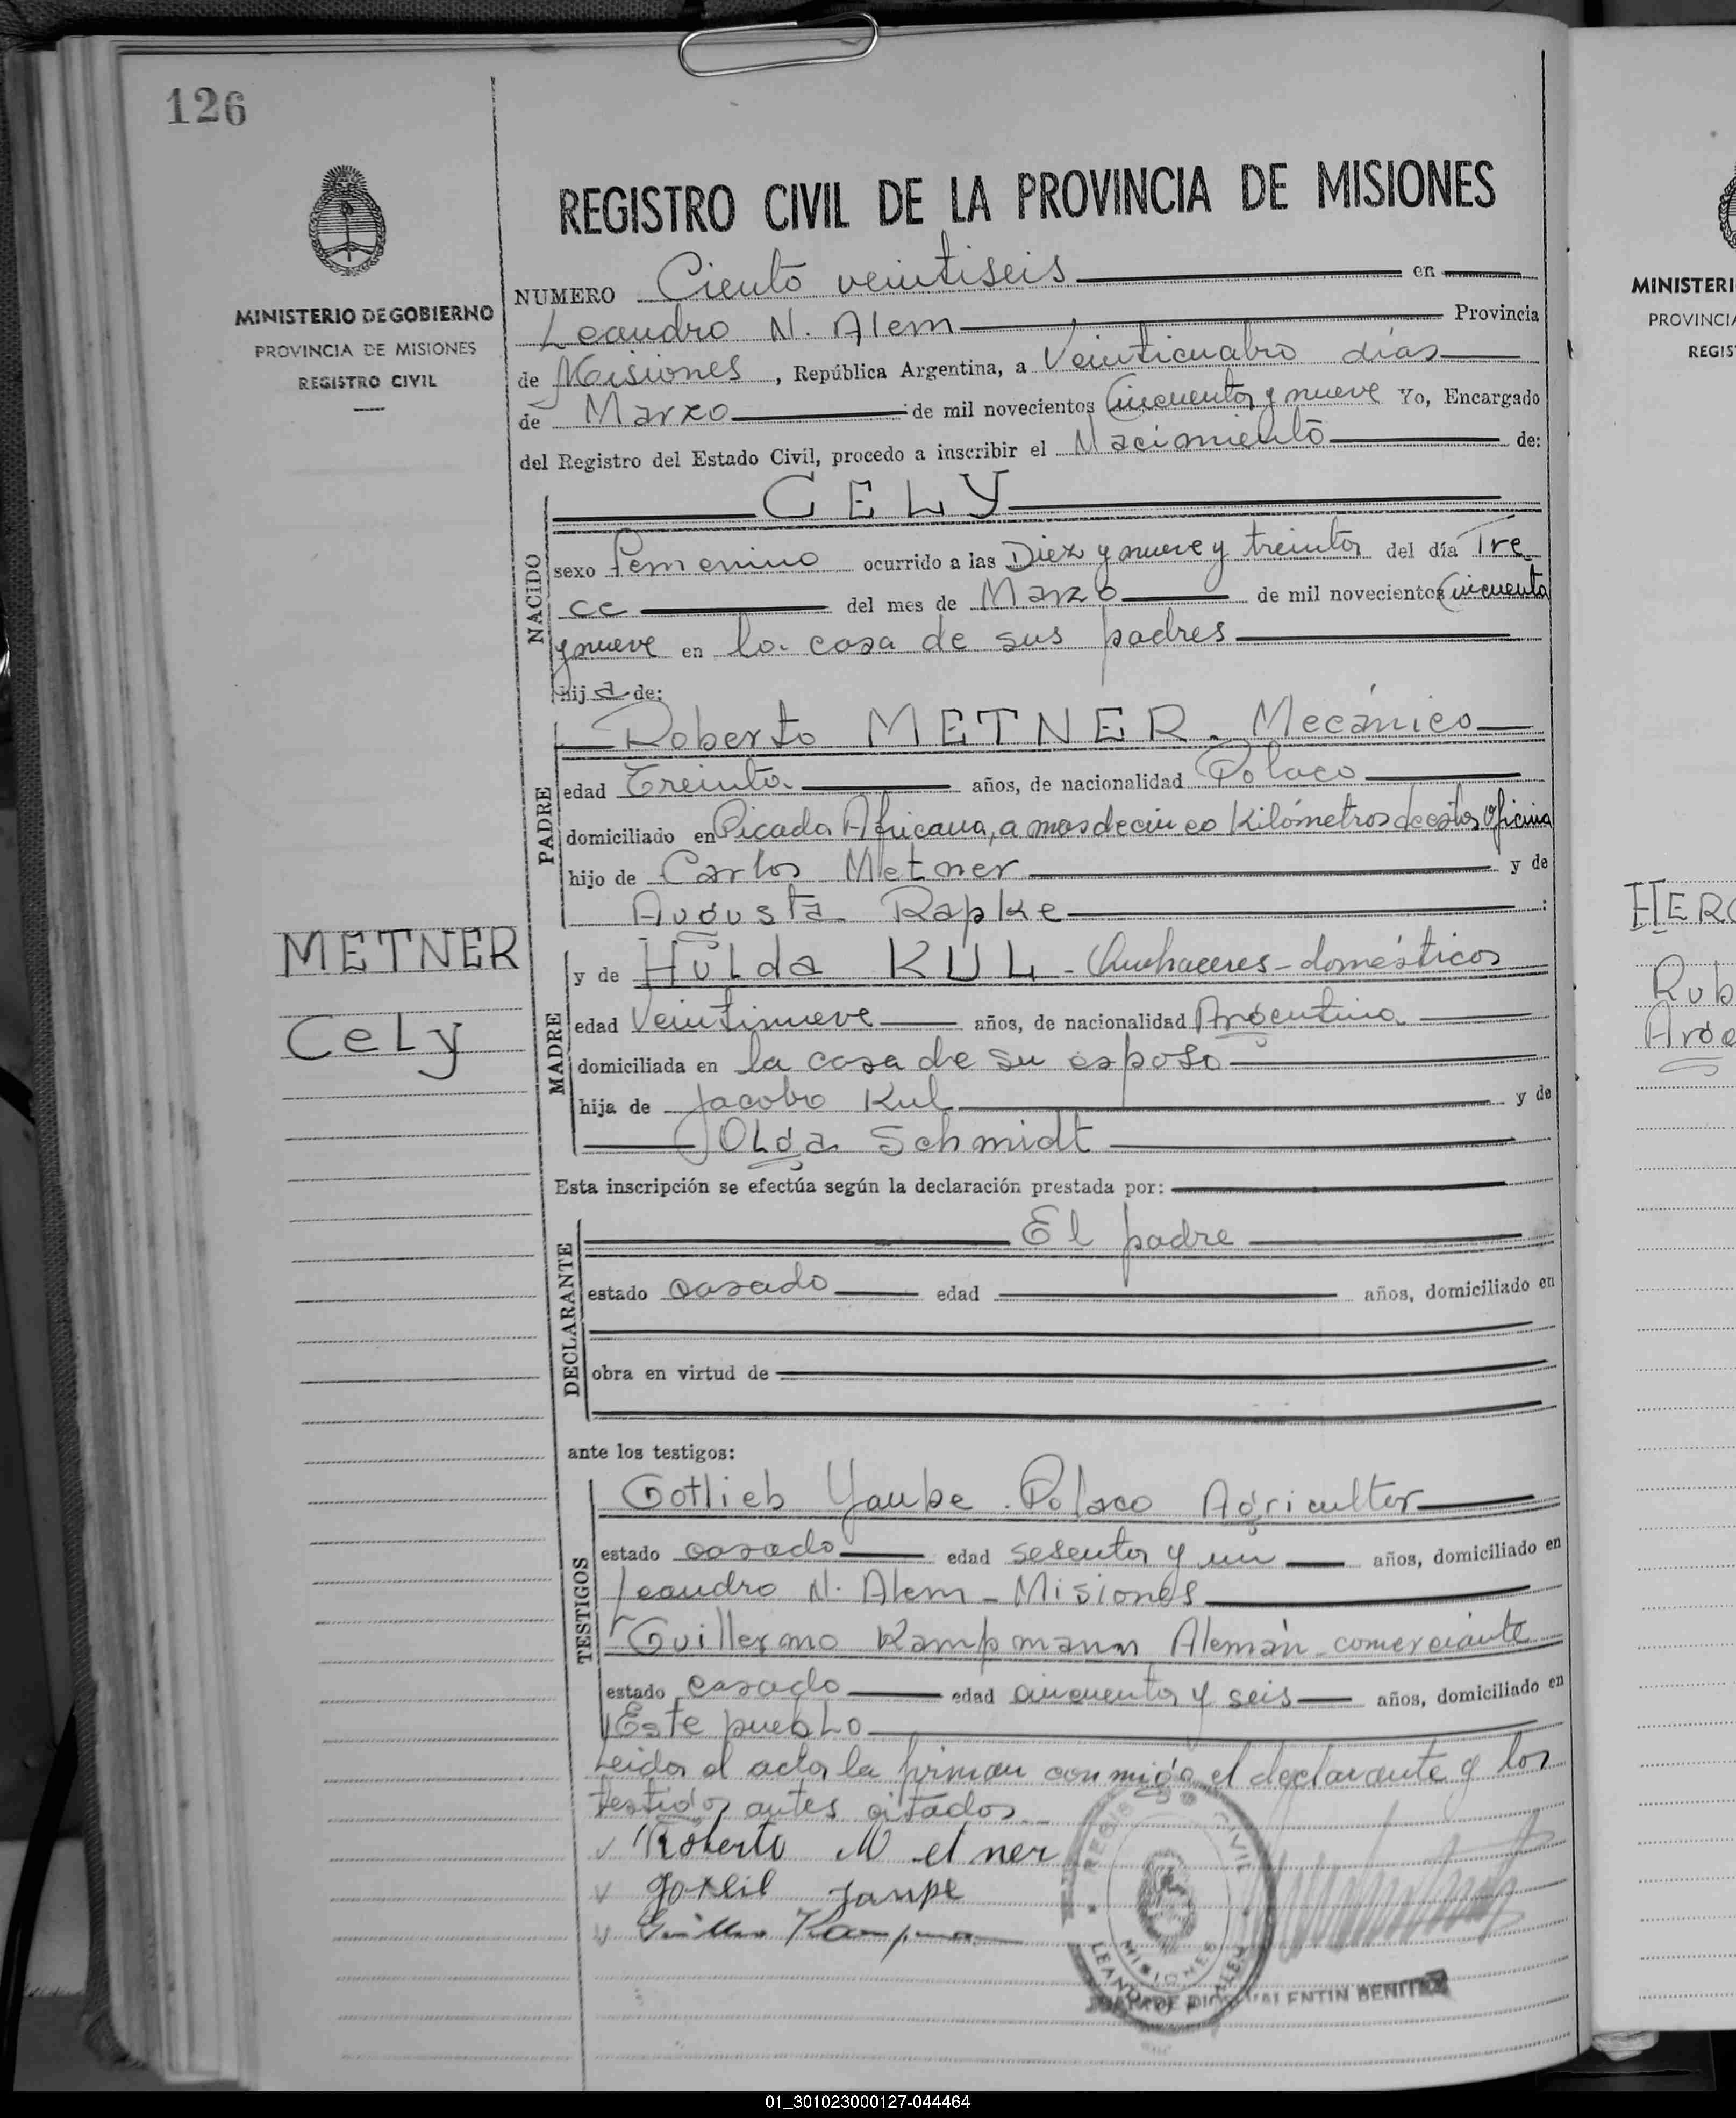 126
MINISTERIO DE GOBIERNO
PROVINCIA DE MISIONES
REGISTRO CIVIL
METNER
CeLy
REGISTRO CIVIL DE LA PROVINCIA DE MISIONES
NUMERO Ciento veintiseis en
Leandro N. Alem Provincia
de Misiones, República Argentina, a Veinticuatro días
de Marzo de mil novecientos Cincuenta y nueve Yo, Encargado
del Registro del Estado Civil, procedo a inscribir el Nacimiento de:
NACIDO
CELY
sexo femenino ocurrido a las Diez y nueve y treinta del día Tre
ce del mes de Marzo de mil novecientos Cincuenta
y nueve en la casa de sus padres
hija de:
PADRE
Roberto METNER. Mecánico
edad Treinta años, de nacionalidad Polaco
domiciliado en Picada Africana, a mas de cinco Kilómetros de esta oficina
hijo de Carlos Metner y de
Augusta Rapke :
MADRE
y de Hulda KUL - Quehaceres - domésticos
edad Veintinueve años, de nacionalidad Argentina
domiciliada en la casa de su esposo
hija de Jacobo Kul y de
Olga Schmidt
Esta inscripción se efectúa según la declaración prestada por:
DECLARANTE
El padre
estado casado edad años, domiciliado en
obra en virtud de
ante los testigos:
TESTIGOS
Gotlieb Yaube Polaco Agricultor
estado casado edad sesenta y un años, domiciliado en
Leandro N. Alem - Misiones
Guillermo Kampmann Alemán comerciante
estado casado edad cincuenta y seis años, domiciliado en
Este pueblo
Leida el acta la firman conmigo el declarante y los
testigos antes citados
Roberto Metner
REGISTRO CIVIL
MISIONES
LEANDRO N. ALEM
JUAN DE DIOS VALENTIN BENITEZ
MINISTERI
PROVINCIA
REGIS
HERC
Rub
Arge
01_301023000127-044464